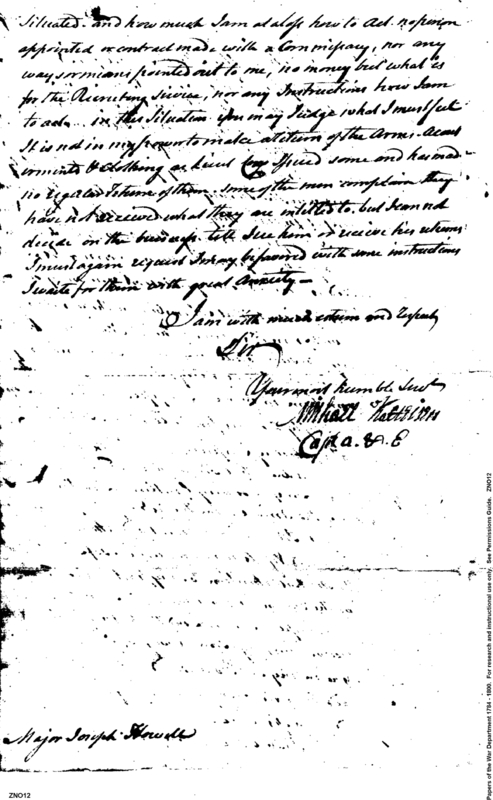 Situated. and how much I am at a loss how to Act. no person
appointed or contract made with a Commissary, nor any
ways or means pointed out to me, no money but what is
for the Recruiting Service, nor any Instructions how I am
to act. in this Situation you may Judge what I must feel
It is not in my power to make a return of the Arms. Accout
orments & Clothing as Lieut issued some and has made
no regular Return of them. some of the men complain they
have not received what they are intitled to. but I can not
decide on the business. till I see him or receive his returns
I must again request I may be favored with some instructions
I waite for them with great Anxiety—
I am with much esteem and Respect
Sir
Your most humble Servt
Capt a. & E
Major Joseph Howell
ZNO12
Papers of the War Department 1784 - 1800. For research and instructional use only. See Permissions Guide. ZNO12